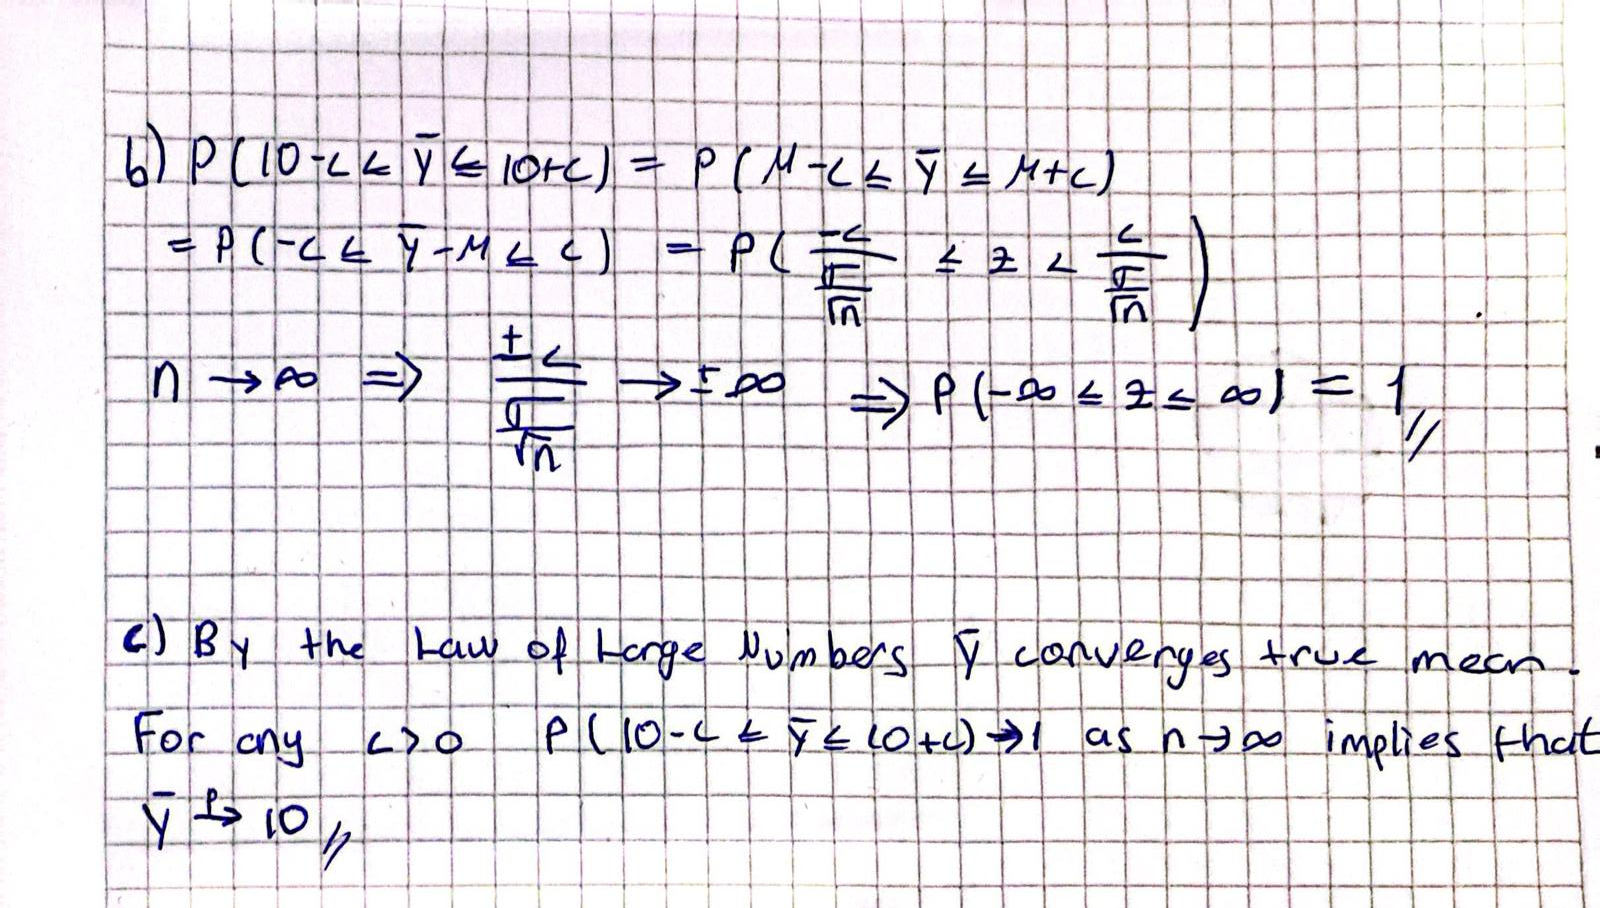 b) P(10-c ≤ Ȳ ≤ 10+c) = P(μ-c ≤ Ȳ ≤ μ+c)
= P(-c ≤ Ȳ-μ ≤ c) = P( -c/(σ/√n) ≤ z < c/(σ/√n) )
n → ∞ ⇒ ±c/(σ/√n) → ±∞ ⇒ P(-∞ ≤ z ≤ ∞) = 1 //
c) By the Law of Large Numbers Ȳ converges true mean.
For any c>0 P(10-c ≤ Ȳ ≤ 10+c) → 1 as n → ∞ implies that
Ȳ →ᵖ 10 //